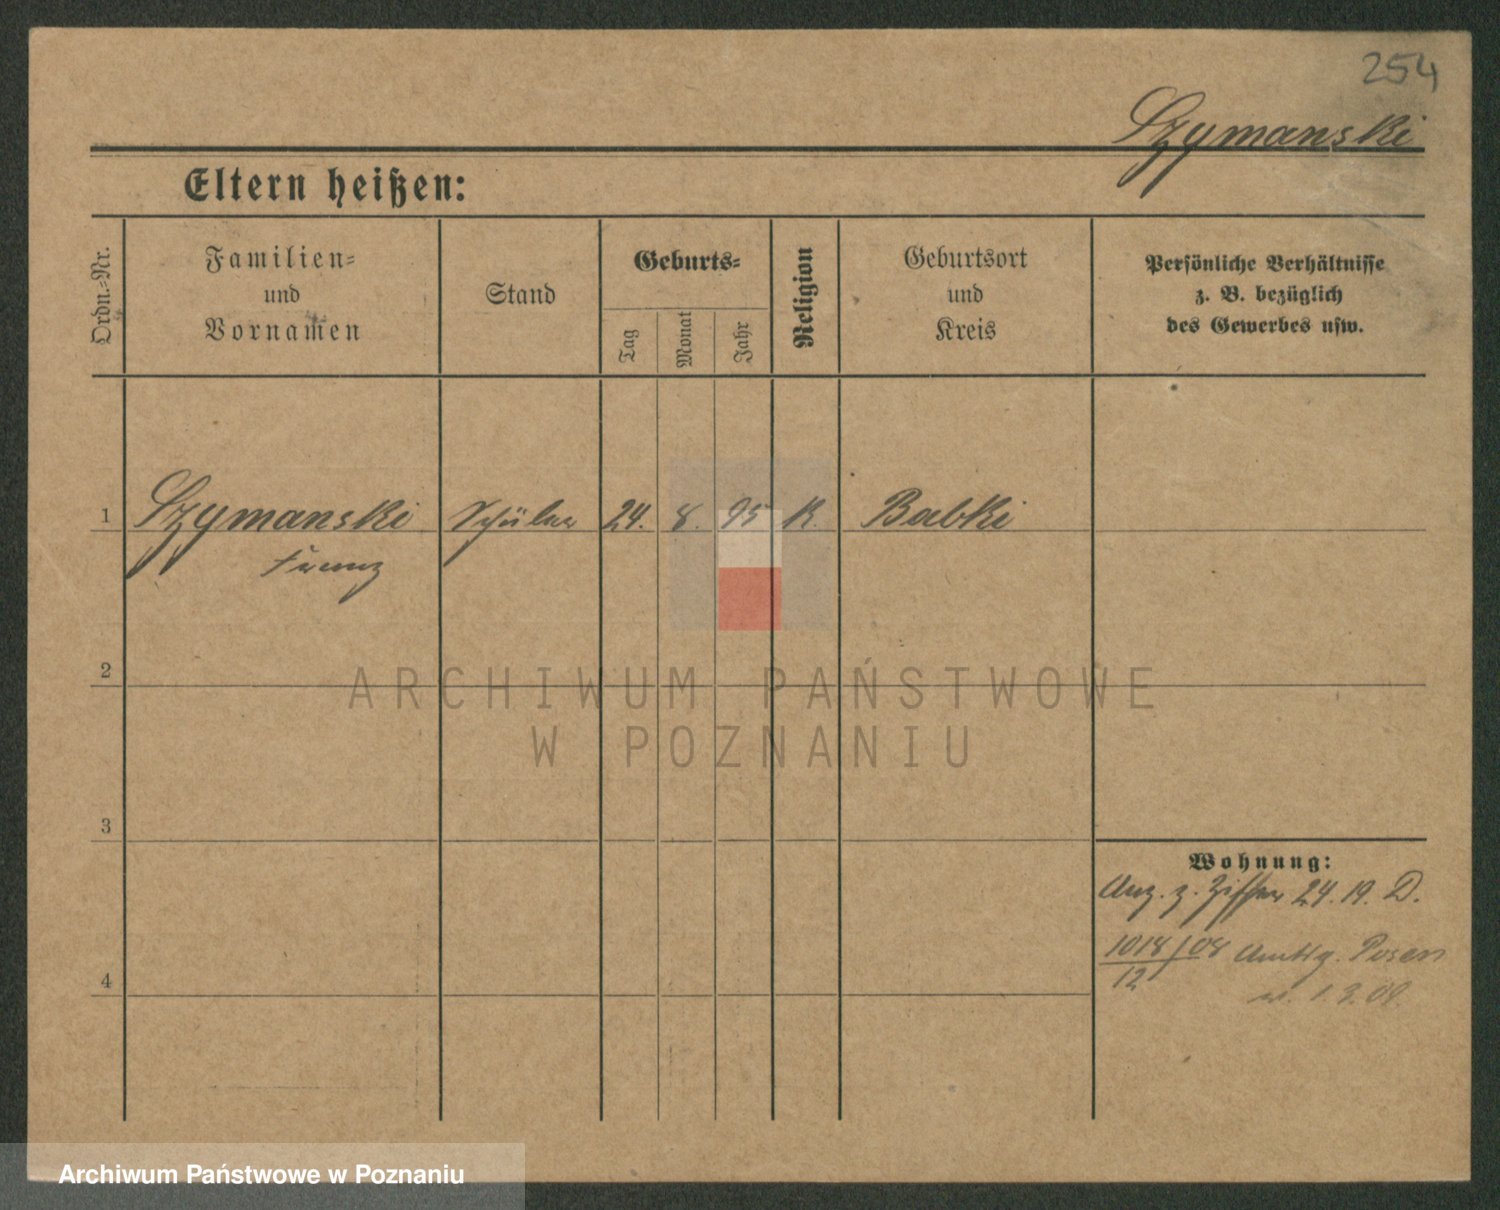 254
Szymanski
Eltern heißen:
Ordn.-Nr.
Familien-
und
Vornamen
Stand
Geburts-
Tag
Monat
Jahr
Religion
Geburtsort
und
Kreis
Persönliche Verhältnisse
z. B. bezüglich
des Gewerbes usw.
1 Szymanski Schüler 24. 8. 95 K. Babki
Franz
2
ARCHIWUM PAŃSTWOWE
W POZNANIU
3
Wohnung:
Anz. z. Ziffer 24. 19. D.
1018/08 Amtsg. Posen
12
4
Archiwum Państwowe w Poznaniu